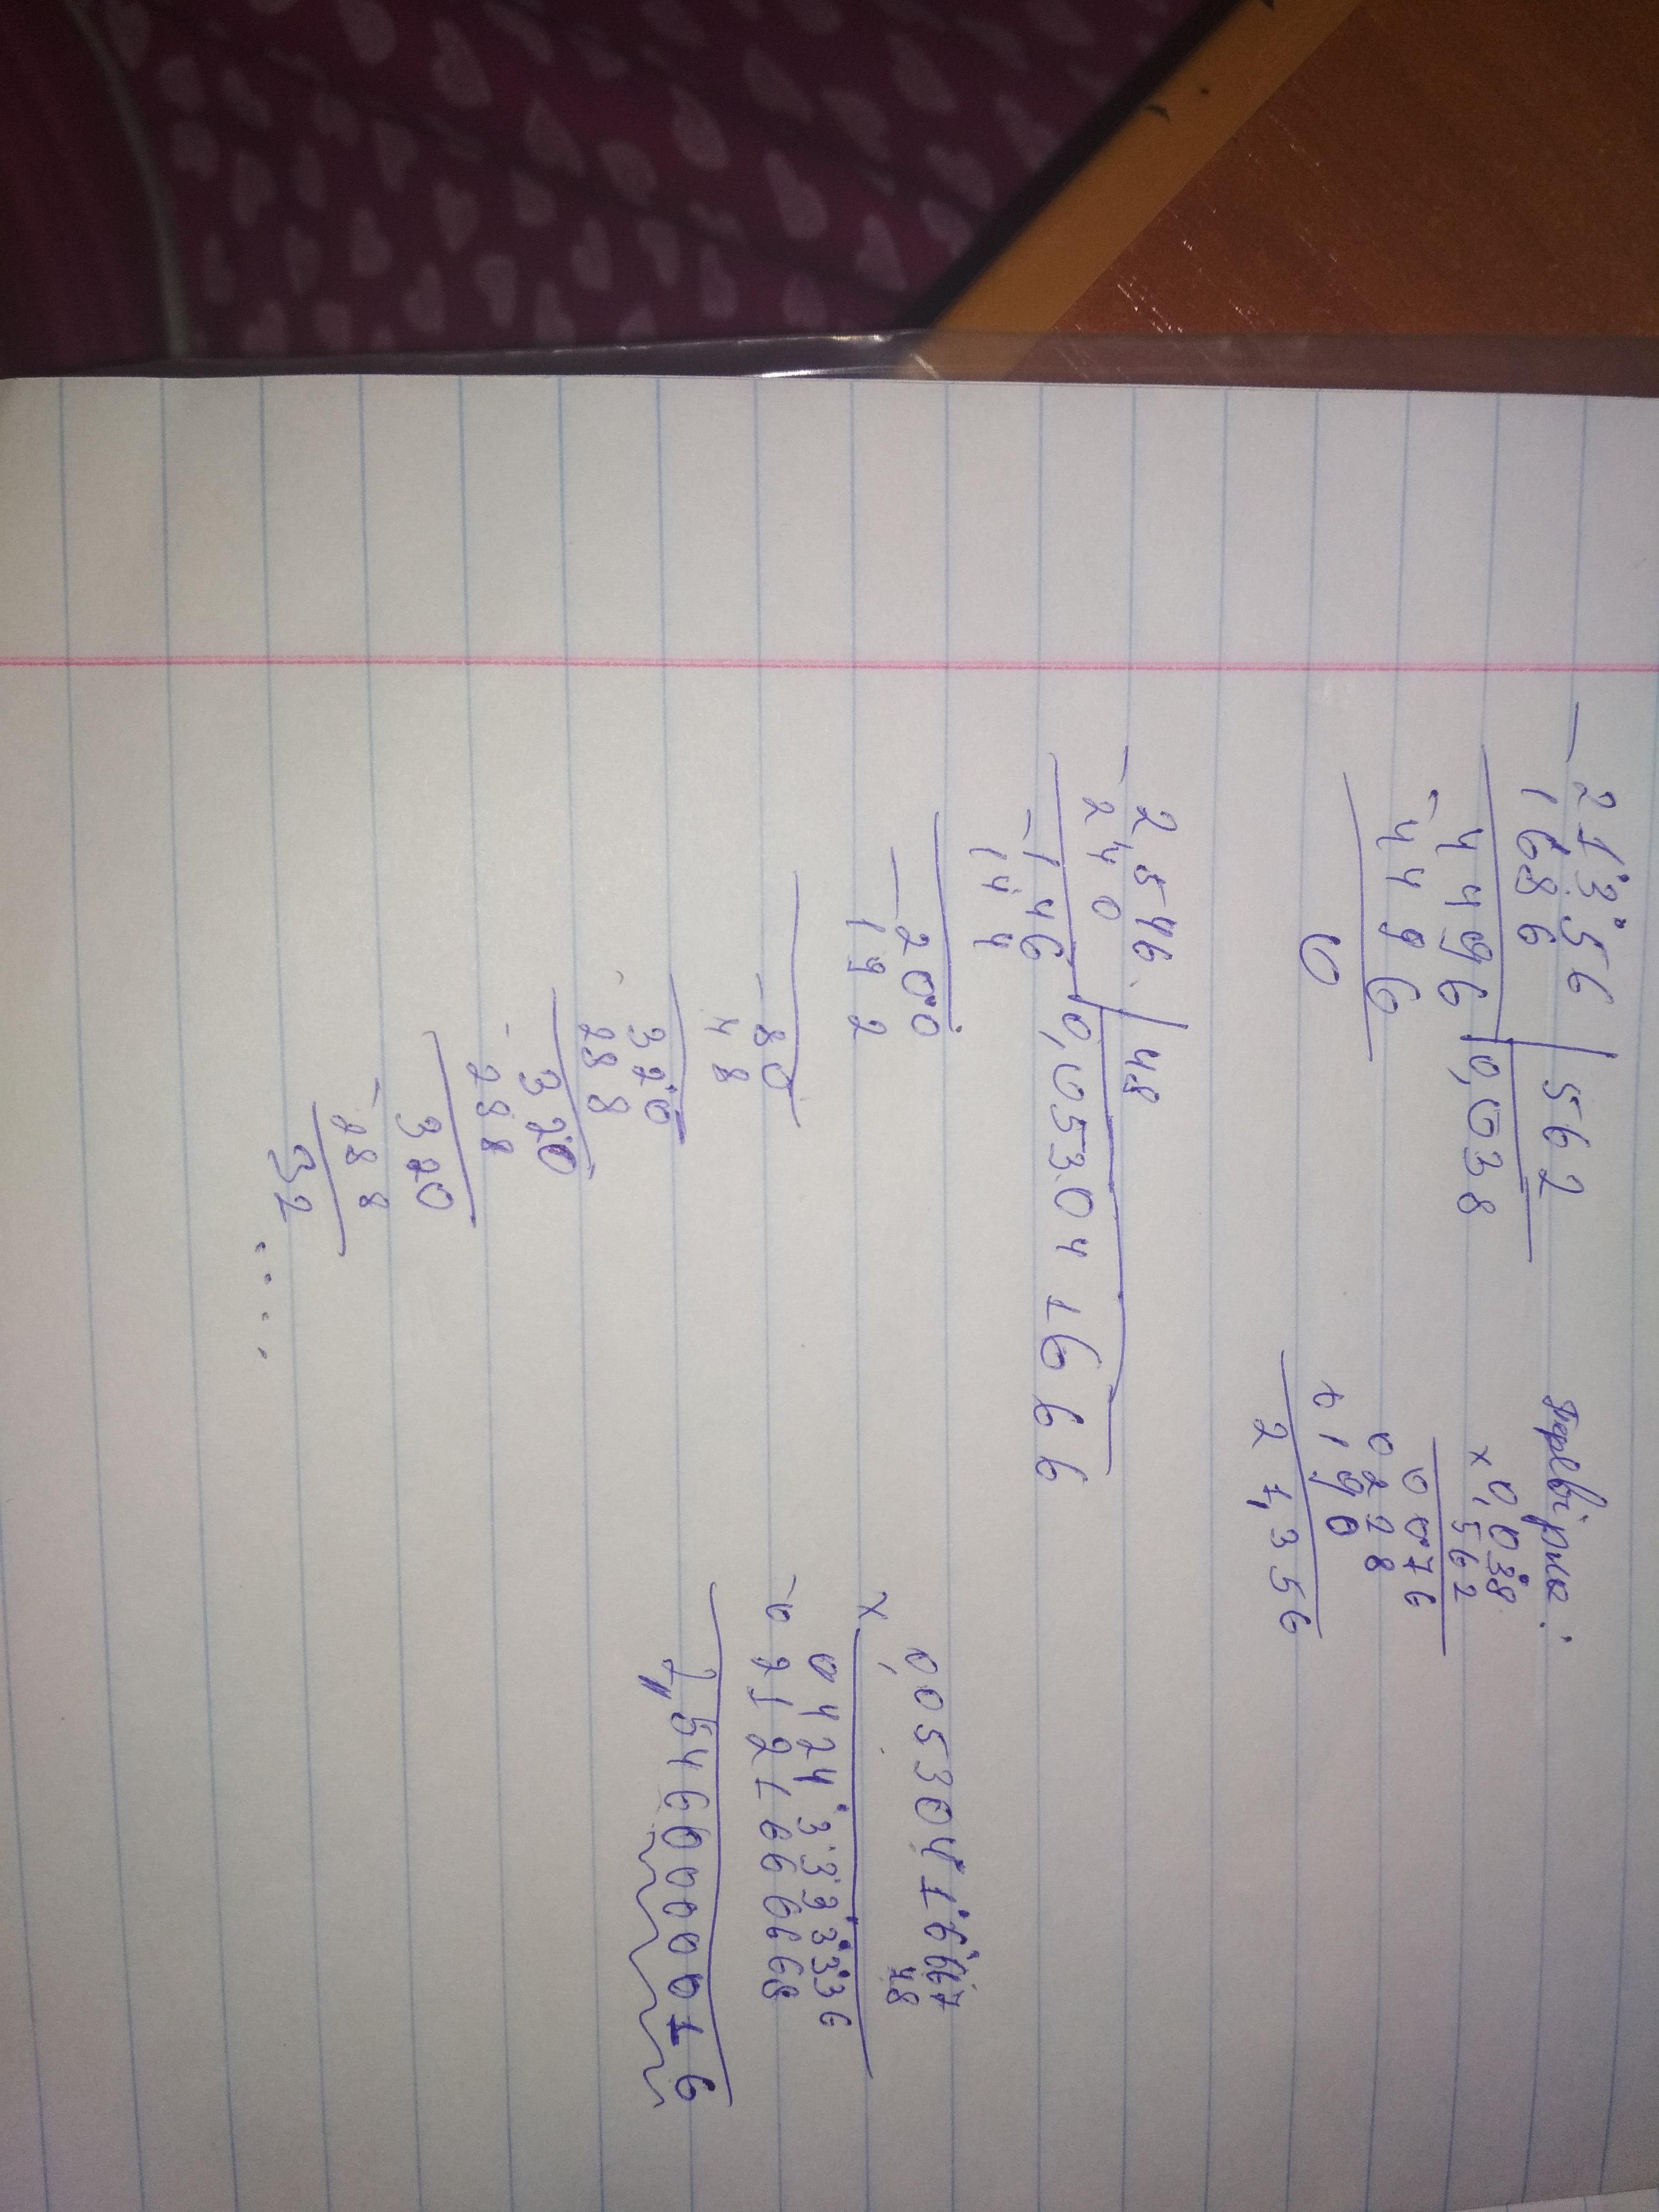 − 21356 | 562
1686
4496 | 0,038
− 4496
0
Перевірка:
× 0,038
562
0076
0228
+ 190
21,356
− 2,546 | 48
240
− 146 | 0,053041666
144
− 200
192
− 80
48
320
288
− 320
288
320
− 288
32
....
0,0530416667
× 48
04243333336
− 02121666668
2,5460000016